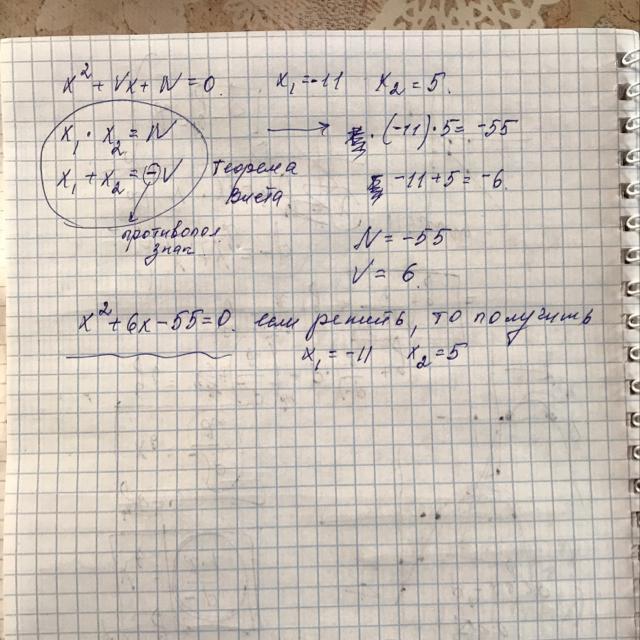 x² + Vx + N = 0.    x₁ = -11    x₂ = 5.
x₁ · x₂ = N    ⟶    · (-11) · 5 = -55
x₁ + x₂ = ⊖V    Теорема Виета    -11 + 5 = -6.
противопол. знак
N = -55
V = 6.
x² + 6x - 55 = 0. если решить, то получишь
x₁ = -11    x₂ = 5